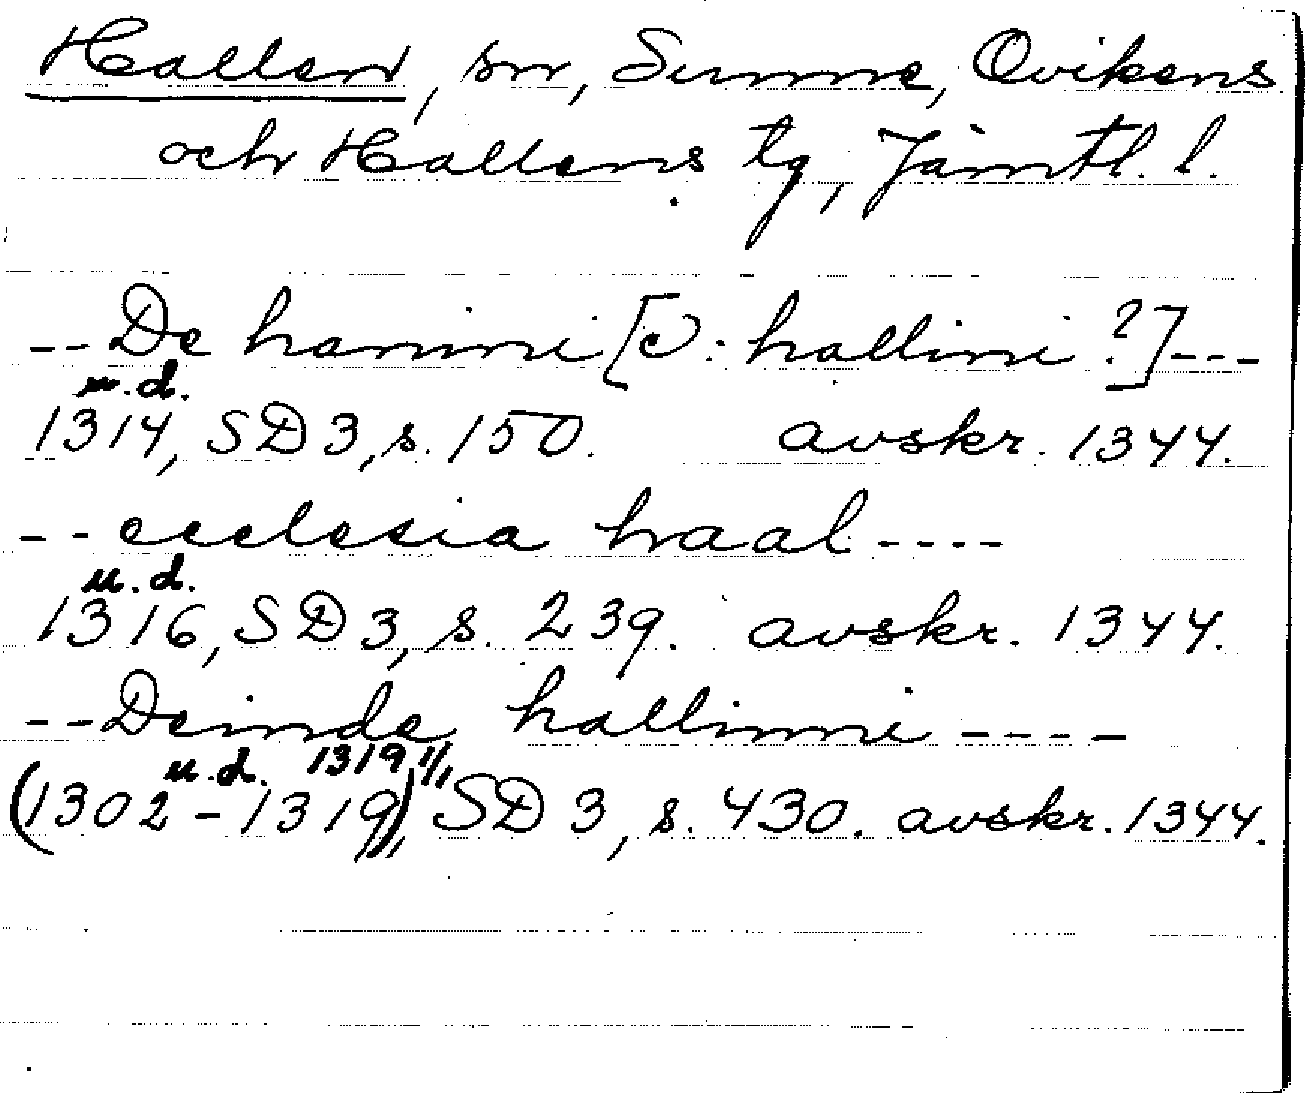 Hallen, sn, Sunne, Ovikens
och Hallens tg, Jämtl. l.
-- De hanimi [ɔ: hallini ?] ---
u.d.
1314, SD 3, s. 150. avskr. 1344.
-- ecclesia haal ----
u.d.
1316, SD 3, s. 239. avskr. 1344.
-- Deinde hallinni ----
u.d. 1319 1/1
(1302-1319), SD 3, s. 430. avskr. 1344.